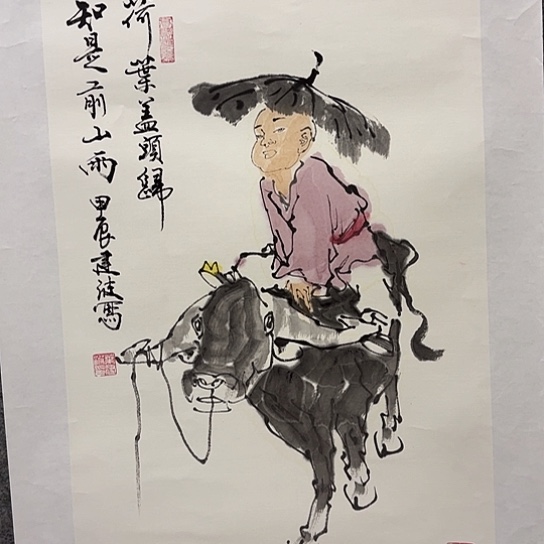 荷葉盖頭歸
知是前山雨 甲辰建波寫